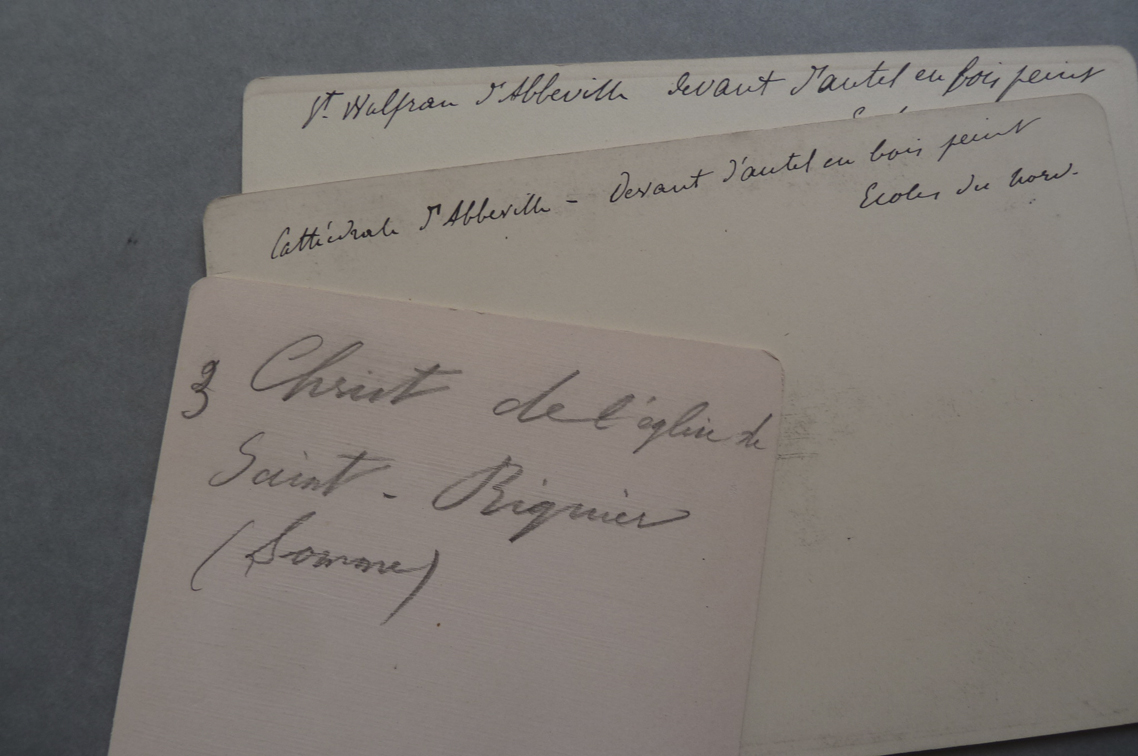 St Wulfran d'Abbeville devant d'autel en bois peint
Cathédrale d'Abbeville - Devant d'autel en bois peint
Ecoles du nord.
3 Christ de l'église de
Saint-Riquier
(Somme)